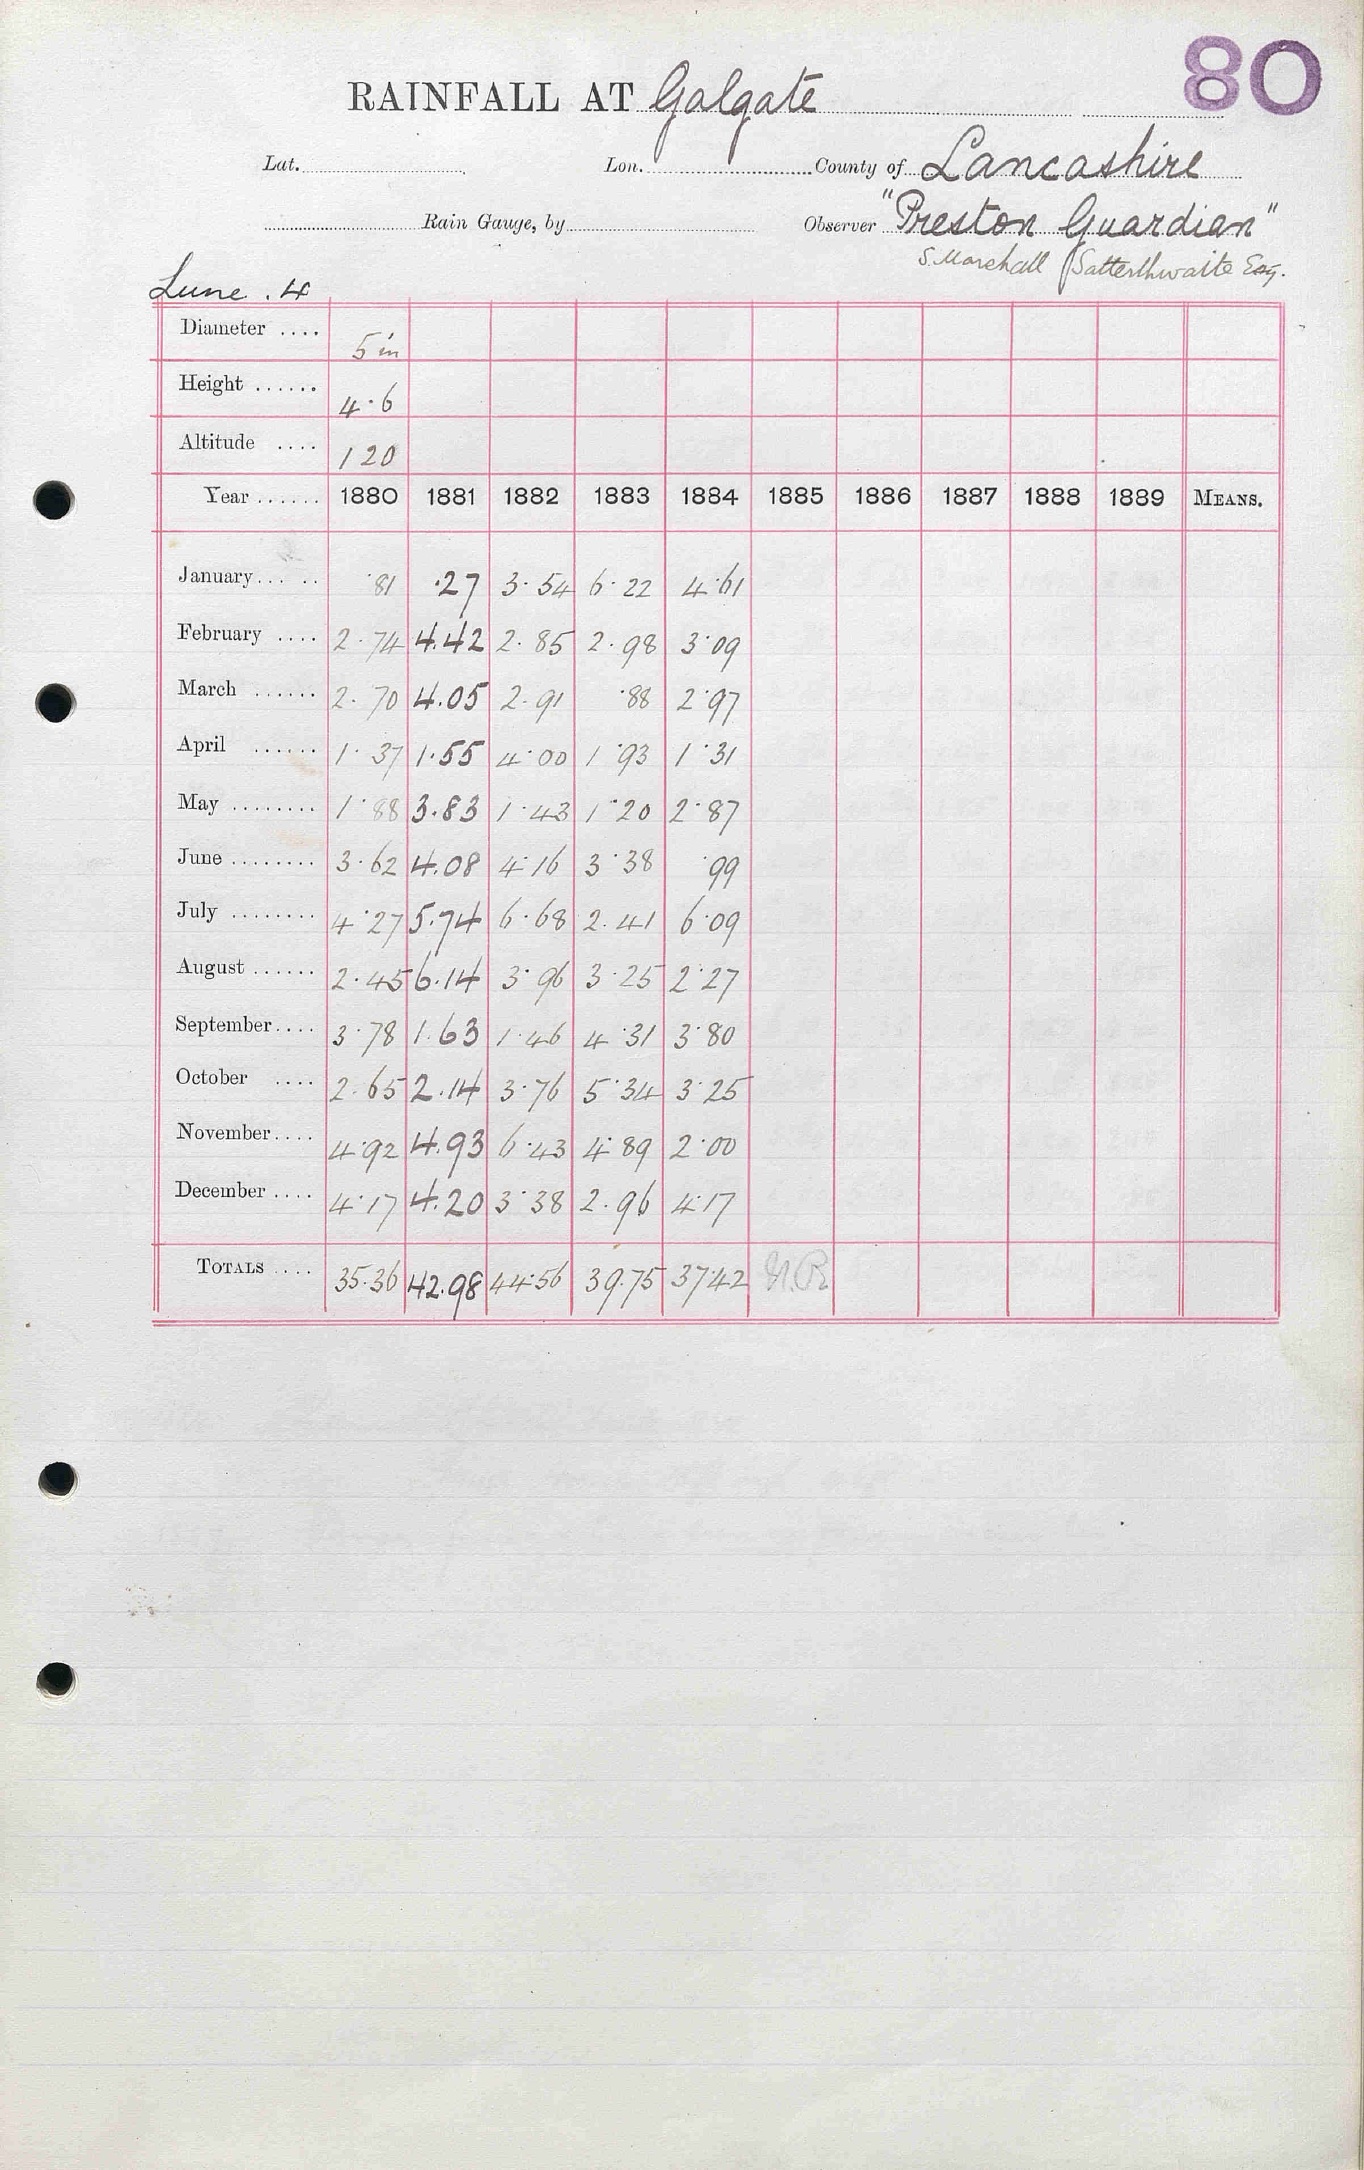 80
RAINFALL AT Galgate
Lat. Lon. County of Lancashire
Rain Gauge, by Observer "Preston Guardian"
S. Marshall Satterthwaite Esq.
Lune . 4
Diameter .... 5 in
Height ...... 4.6
Altitude .... 120
Year ...... 1880 1881 1882 1883 1884 1885 1886 1887 1888 1889 MEANS.
January ... .. .81 .27 3.54 6.22 4.61
February .... 2.74 4.42 2.85 2.98 3.09
March ...... 2.70 4.05 2.91 .88 2.97
April ...... 1.37 1.55 4.00 1.93 1.31
May ........ 1.88 3.83 1.43 1.20 2.87
June ........ 3.62 4.08 4.16 3.38 .99
July ........ 4.27 5.74 6.68 2.41 6.09
August ...... 2.45 6.14 3.96 3.25 2.27
September .... 3.78 1.63 1.46 4.31 3.80
October .... 2.65 2.14 3.76 5.34 3.25
November .... 4.92 4.93 6.43 4.89 2.00
December .... 4.17 4.20 3.38 2.96 4.17
TOTALS .... 35.36 42.98 44.56 39.75 37.42 N.R.